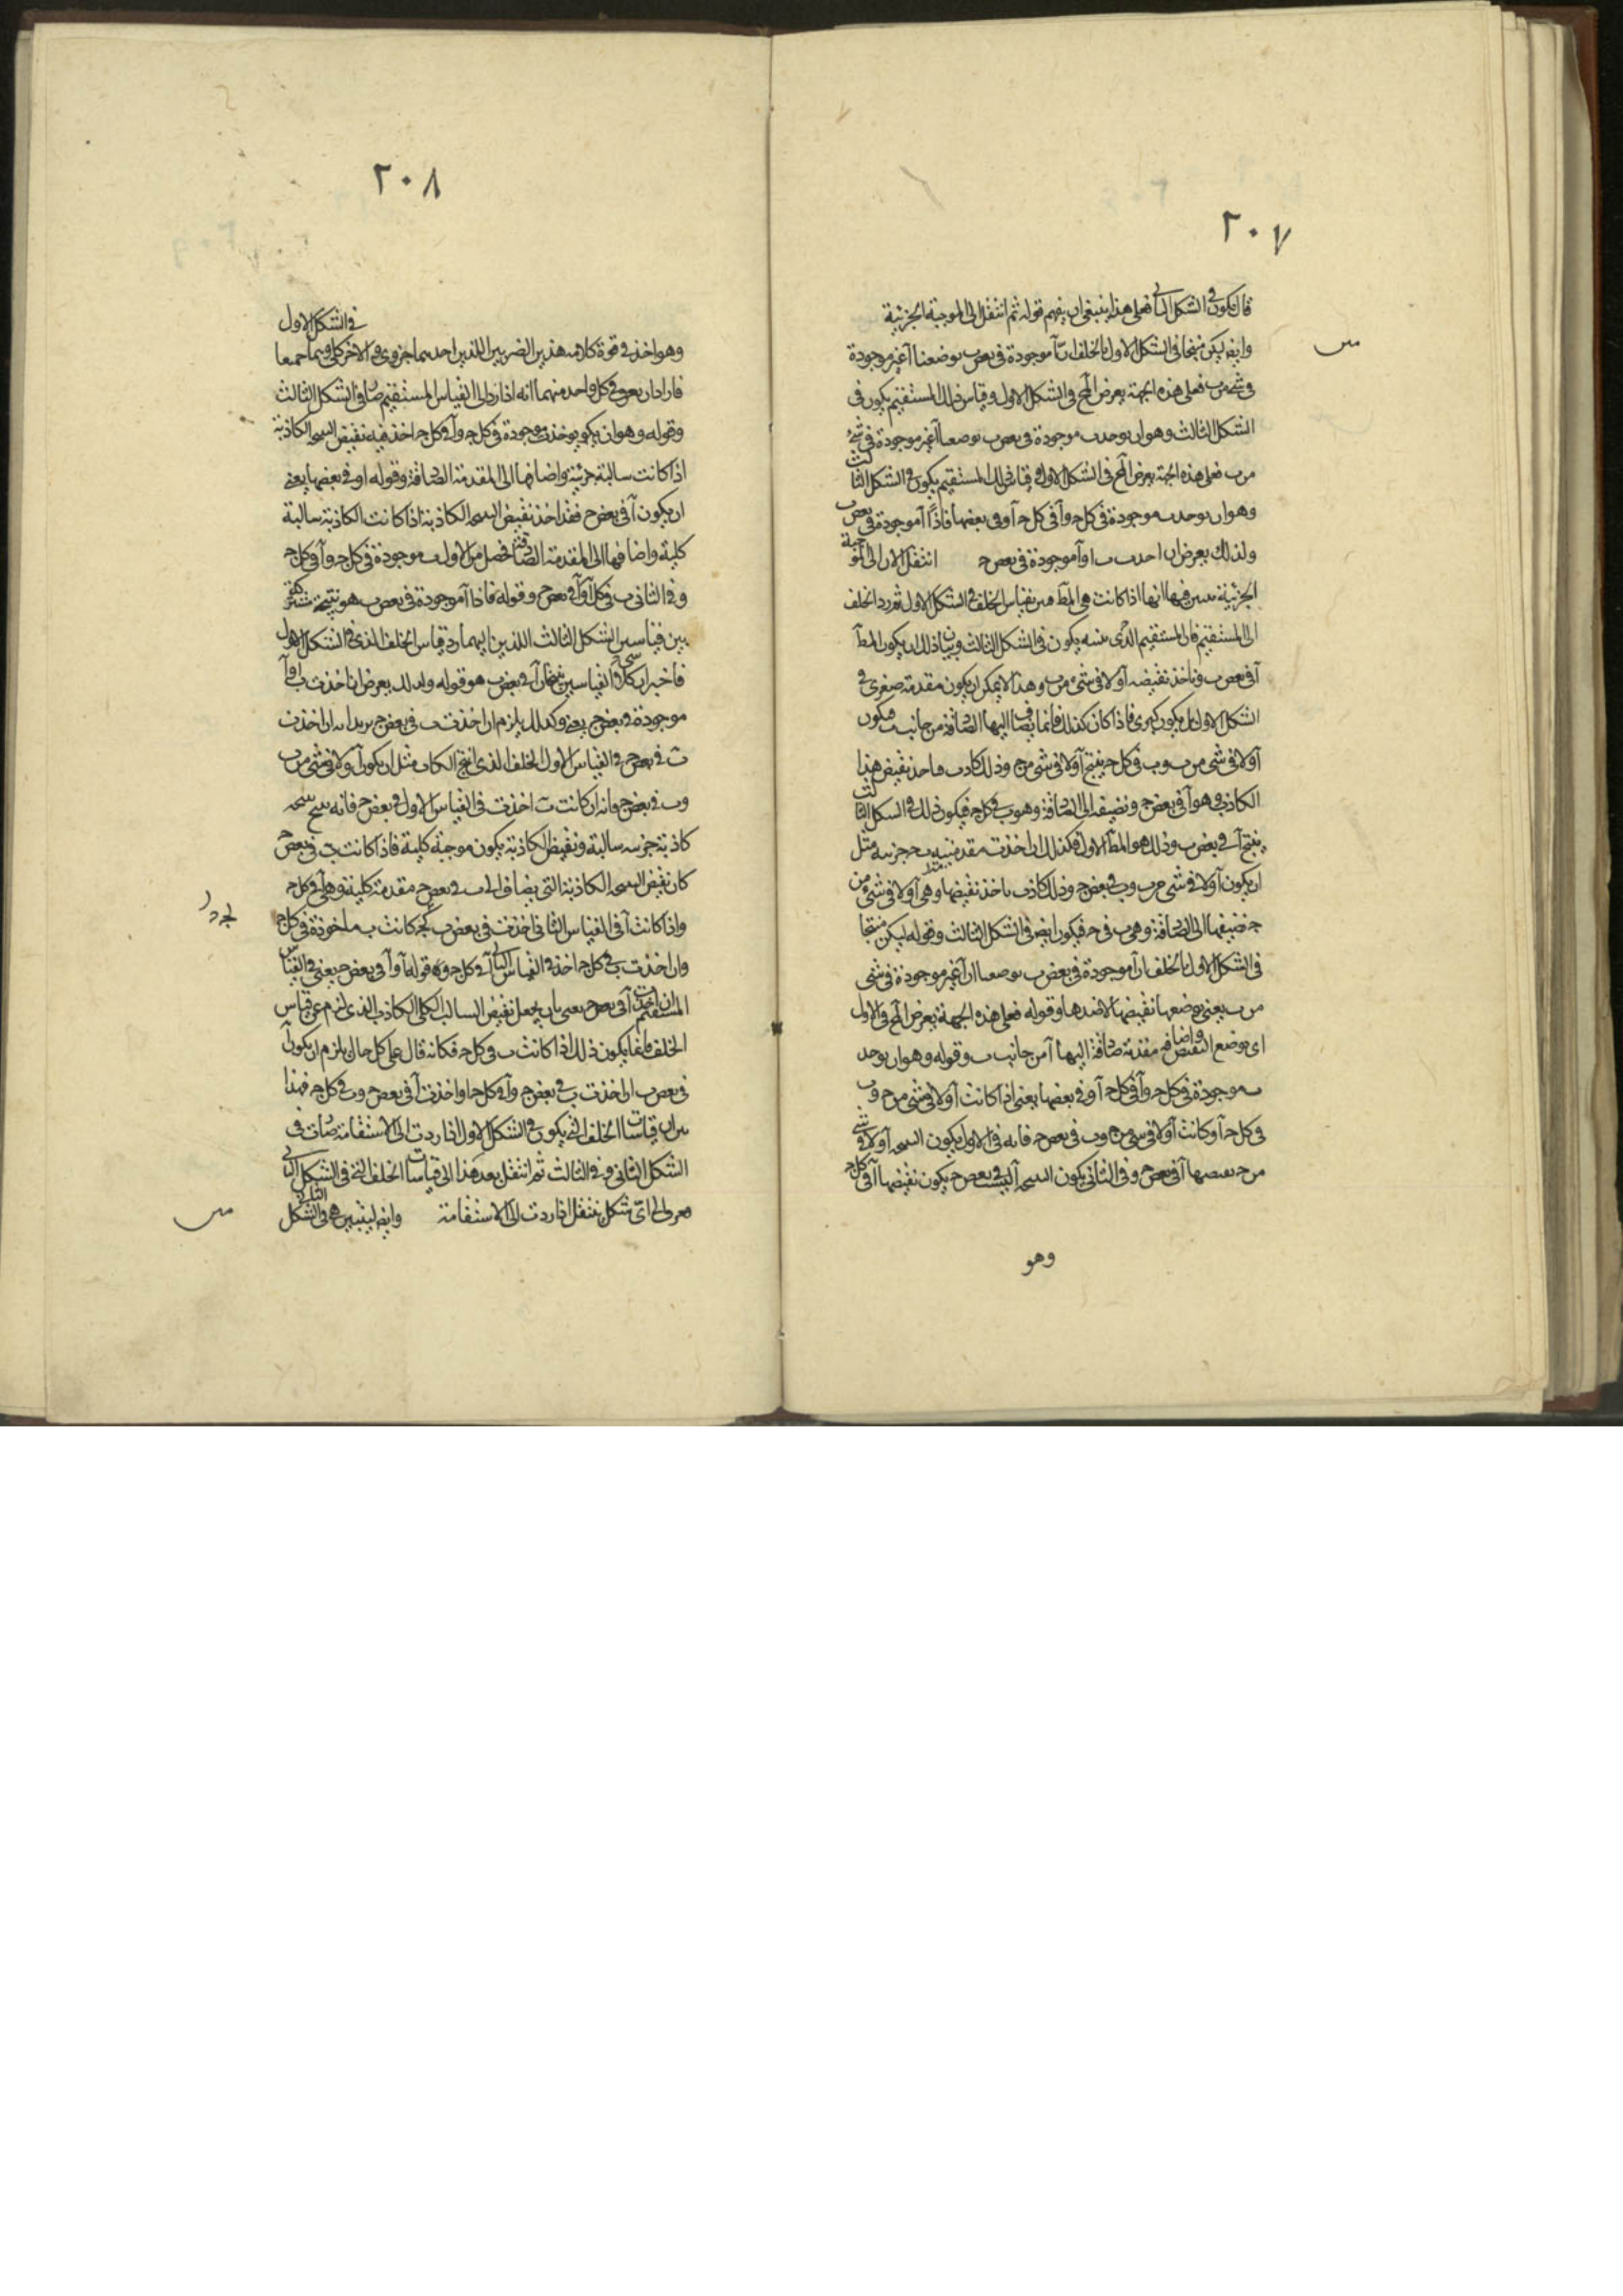 ٢٠٧
فان يكون في الشكل الثاني فعلى هذا ينبغي ان يفهم قوله ثم انتقل الى الموجبة الجزئية
وايضا ليكن منتجا في الشكل الاول بالخلف ان آ موجودة في بعض ب بوضعنا آ غير موجودة
في شيء من ب فعلى هذه الجهة يعرض المح في الشكل الاول وقياس ذلك المستقيم يكون في
الشكل الثالث وهو ان يوجد ب موجودة في بعض ب بوضعنا آ غير موجودة في شيء
من ب فعلى هذه الجهة يعرض المح في الشكل الاول وقياس ذلك المستقيم يكون في الشكل الثالث
وهو ان يوجد ب موجودة في كل ج وآ في كل ج آ وفي بعضها فاذًا آ موجودة في بعض ب
ولذلك يعرض ان احدب ب او آ موجودة في بعض ج انتقل الان الى الموجبة
الجزئية فبين فيها انها اذا كانت هي المط فبين بقياس الخلف في الشكل الاول ثم رد الخلف
الى المستقيم فان المستقيم الذي بينه يكون في الشكل الثالث وبيان ذلك ان يكون المط
آ في بعض ب وناخذ نقيضه آ ولا في شيء من ب وهذا لا يمكن ان يكون مقدمة صغرى في
الشكل الاول بل يكون كبرى فاذا كان كذلك فانما يضاف اليها الصادقة من جانب ب فيكون
آ ولا في شي من ب وب في كل ج ينتج آ ولا في شي من ج وذلك كاذب فناخذ نقيض هذا
الكاذب وهو آ في بعض ج ونضيفه الى الصادقة وهو ب في كل ج فيكون ذلك في الشكل الثالث
ينتج آ في بعض ب وذلك هو المط الاول وكذلك ان اخذت مقدمة ب ج جزئية مثل
ان يكون آ ولا في شي من ب وب في بعض ج وذلك كاذب ناخذ نقيضها وهي آ ولا في شي من
ج فنضيفها الى الصادقة وهي ب في ج فيكون ايض في الشكل الثالث وقوله ليكن منتجا
في الشكل الاول بالخلف ان آ موجودة في بعض ب بوضعنا ان آ غير موجودة في شي
من ب يعني بوضعها نقيضها لا ضدها وقوله فعلى هذه الجهة يعرض المح في الاول
اي بوضع النقيض واضافه مقدمة صادقة اليها آ من جانب ب وقوله وهو ان يوجد
ب موجودة في كل ج وآ في كل ج آ وفي بعضها يعني اذا كانت آ ولا في شي من ج وب
في كل ج آ وكانت آ ولا في شي من ج وب في بعض ج فانه في الاول يكون النتيجة آ ولا في شي
من ج نقيضها آ في بعض ج وفي الثاني يكون النتيجة آ ليست في بعض ج يكون نقيضها آ في كل ج
وهو
مىں
٢٠٨
في الشكل الاول
وهو اخذ في قوة كلامه هذين الضربين اللذين احدهما جزوي والاخر كلي وهما جميعا
فاراد ان يعرف في كل واحد منهما انه اذا رد الى القياس المستقيم صار في الشكل الثالث
وقوله وهو ان يكون يوخذ ب موجودة في كل ج وآ في كل ج اخذ فيه نقيض النتيجة الكاذبة
اذا كانت سالبة جزئية واضافها الى المقدمة الصادقة وقوله او في بعضها يعني
ان يكون آ في بعض ج فقد اخذ نقيض النتيجة الكاذبة اذا كانت الكاذبة سالبة
كلية واضافها الى المقدمة الصادقة فحصل من الاول ب موجودة في كل ج وآ في كل ج
وفي الثاني ب في كل ج وآ في بعض ج وقوله فاذا آ موجودة في بعض ب هو نتيجة مشتركة
بين قياسين الشكل الثالث اللذين اليهما رد قياس الخلف الذي في الشكل الاول
فاخبر ان كلا القياسين ينتجان آ في بعض ب هو قوله ولذلك يعرض ان اخذت ب او آ
موجودة في بعض ج يعني وكذلك يلزم ان اخذت ب في بعض ج يريد انه ان اخذت
ب في بعض ج في القياس الاول الخلف الذي انتج الكاذب مثل ان يكون آ ولا في شي من ب
وب في بعض ج وانه ان كانت ب اخذت في القياس الاول في بعض ج فانه ينتج نتيجة
كاذبة جزئية سالبة ونقيض الكاذبة يكون موجبة كلية فاذا كانت ب في بعض ج
كان نقيض النتيجة الكاذبة التي يضاف الى ب في بعض ج مقدمة كلية وهي آ في كل ج
واذا كانت آ في القياس الثاني اخذت في بعض ب ج كانت ب ماخوذة في كل ج
وان اخذت ب في كل ج اخذ في القياس الثاني آ في كل ج وقوله او آ في بعض ج يعني في القياس
المستقيم ان اخذت آ في بعض ج يعني بان يجعل نقيض السالب الكلي الكاذب الذي لزم عن قياس
الخلف فانما يكون ذلك اذا كانت ب في كل ج فكانه قال على كل حال يلزم ان يكون آ
في بعض ب ان اخذت ب في بعض ج وآ في كل ج او اخذت آ في بعض ج وب في كل ج فهذا
بين ان قياسات الخلف التي يكون في الشكل الاول اذا ردت الى الاستقامة صارت في
الشكل الثاني وفي الثالث ثم انتقل بعد هذا الى قياسات الخلف التي في الشكل الثاني
فعرف الى اي شكل ينتقل اذا ردت الى الاستقامة وايضا ليتبين هي في الشكل الثاني
مىں